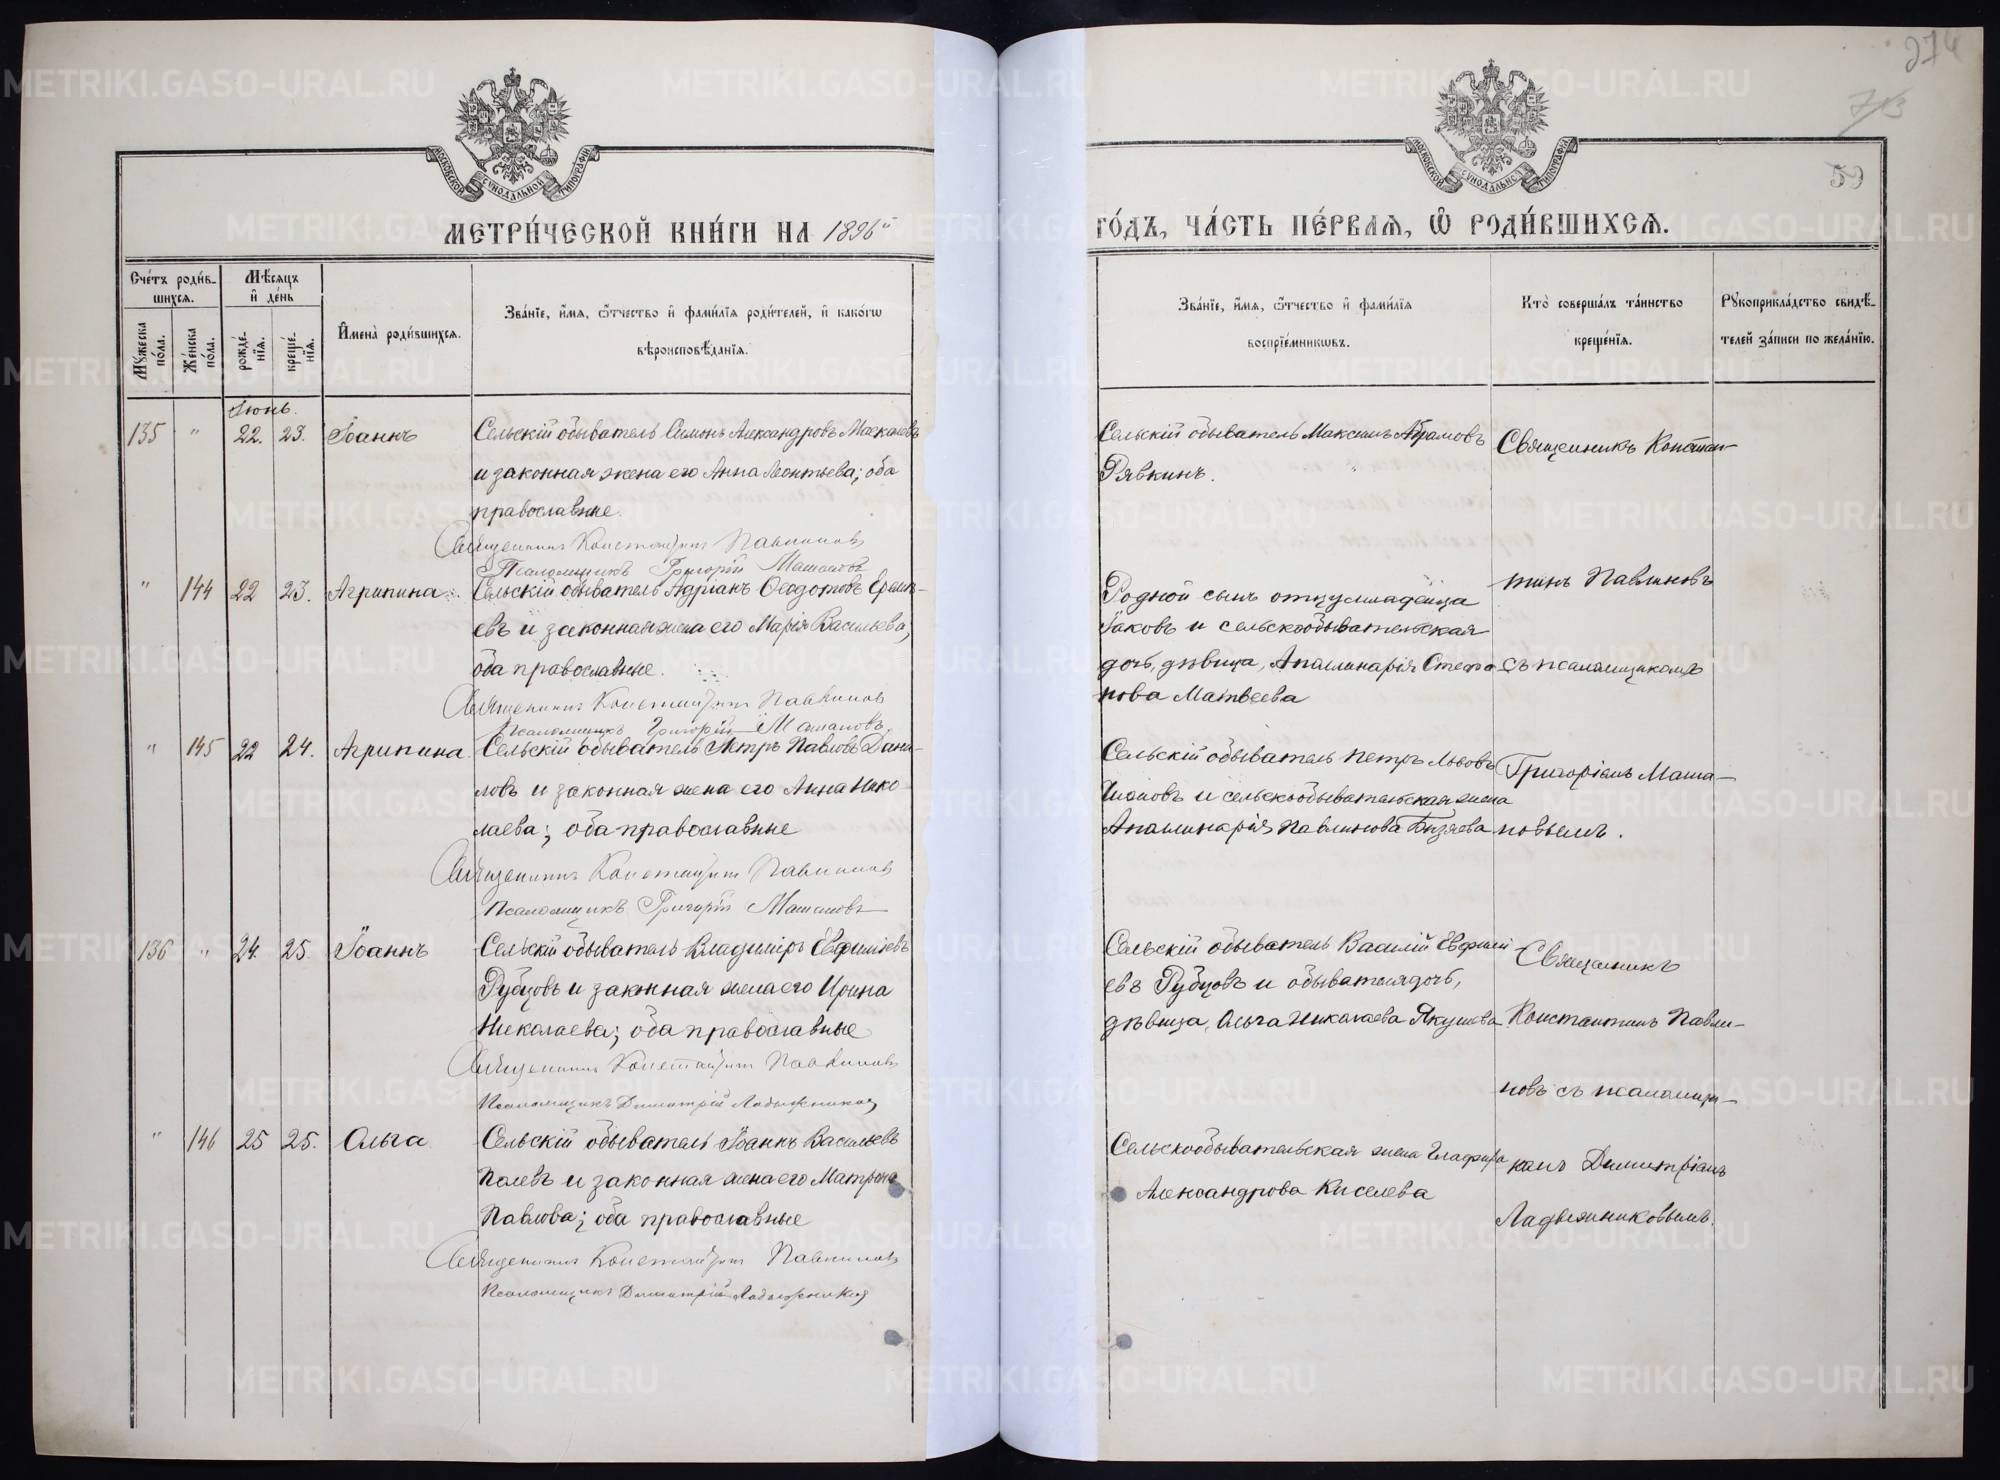 274
73
59
МОСКОВСКОЙ СУНОДАЛЬНОЙ ТИПОГРАФІИ
МОСКОВСКОЙ СУНОДАЛЬНОЙ ТИПОГРАФІИ
МЕТРИ́ЧЕСКОЙ КНИ́ГИ НА 1896й ГО́ДЪ, ЧА́СТЬ ПЕ́РВАЯ, Ѡ҆ РОДИ́ВШИХСЯ.
Сче́тъ роди́вшихся.
Мꙋ́жеска по́ла.
Же́нска по́ла.
Мѣ́сяцъ и҆ де́нь
рожде́нїя.
креще́нїя.
И҆мена̀ роди́вшихся.
Зва́нїе, и҆́мя, ѻ҆́тчество и҆ фами́лїя роди́телей, и҆ како́гѡ
вѣроисповѣ́данїя.
Зва́нїе, и҆́мя, ѻ҆́тчество и҆ фами́лїя
воспрїе́мникѡвъ.
Кто̀ соверша́лъ та́инство
креще́нїя.
Рꙋкоприкла́дство свидѣ́-
телей за́писи по жела́нїю.
Іюнь.
135 " 22. 23. Іоаннъ
Сельскій обыватель Симонъ Александровъ
и законная жена его Анна Леонтьева; оба
православные.
Священникъ Константинъ Павлиновъ
Псаломщикъ Григорій Машановъ
Сельскій обыватель Максимъ Абрамовъ
Рявкинъ.
Священникъ Констан-
" 144 22 23. Агрипина
Сельскій обыватель Адріанъ Ѳеодотовъ
евъ и законная жена его Марія Васильева;
оба православные.
Священникъ Константинъ Павлиновъ
Псаломщикъ Григорій Машановъ
Родной сынъ отцу младенца
Іаковъ и сельскообывательская
дочь, дѣвица, Апалинарія Степа
нова Матвеева
тинъ Павлиновъ
съ псаломщикомъ
" 145 22 24. Агрипина
Сельскій обыватель Петръ Павловъ Дани-
ловъ и законная жена его Анна Нико-
лаева; оба православные
Священникъ Константинъ Павлиновъ
Псаломщикъ Григорій Машановъ
Сельскій обыватель Петръ Львовъ
и сельскообывательская жена
Апалинарія Павлинова Бызяева
Григоріемъ Маша-
новымъ.
136 " 24. 25. Іоаннъ
Сельскій обыватель Владиміръ Евфиміевъ
Рубцовъ и законная жена его Ирина
Николаева; оба православные
Священникъ Константинъ Павлиновъ
Псаломщикъ Димитрій Ладыжниковъ
Сельскій обыватель Василій Евфимі
евъ Рубцовъ и обывателя дочь,
дѣвица, Ольга Николаева Якушева
Священникъ
Константинъ Павли-
новъ съ псаломщи-
" 146 25 25. Ольга
Сельскій обыватель Іоаннъ Васильевъ
Палевъ и законная жена его Матрона
Павлова; оба православные
Священникъ Константинъ Павлиновъ
Псаломщикъ Димитрій Ладыжниковъ
Сельскообывательская жена Глафира
Александрова Киселева
комъ Димитріемъ
Ладыжниковымъ.
METRIKI.GASO-URAL.RU